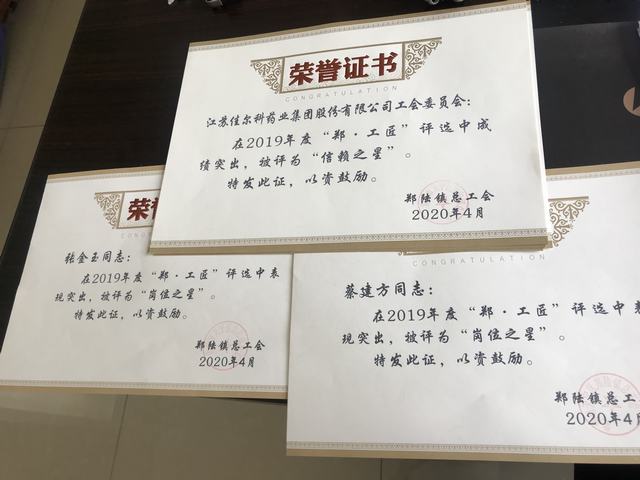 荣誉证书
CONGRATULATION
江苏佳尔科药业集团股份有限公司工会委员会：
在2019年度“郑·工匠”评选中成
绩突出，被评为“信赖之星”。
特发此证，以资鼓励。
郑陆镇总工会
2020年4月
荣
CONG
张金玉同志：
在2019年度“郑·工匠”评选中表
现突出，被评为“岗位之星”。
特发此证，以资鼓励。
郑陆镇总工会
2020年4月
CONGRATULATION
蔡建方同志：
在2019年度“郑·工匠”评选中表
现突出，被评为“岗位之星”。
特发此证，以资鼓励。
郑陆镇总工
2020年4月